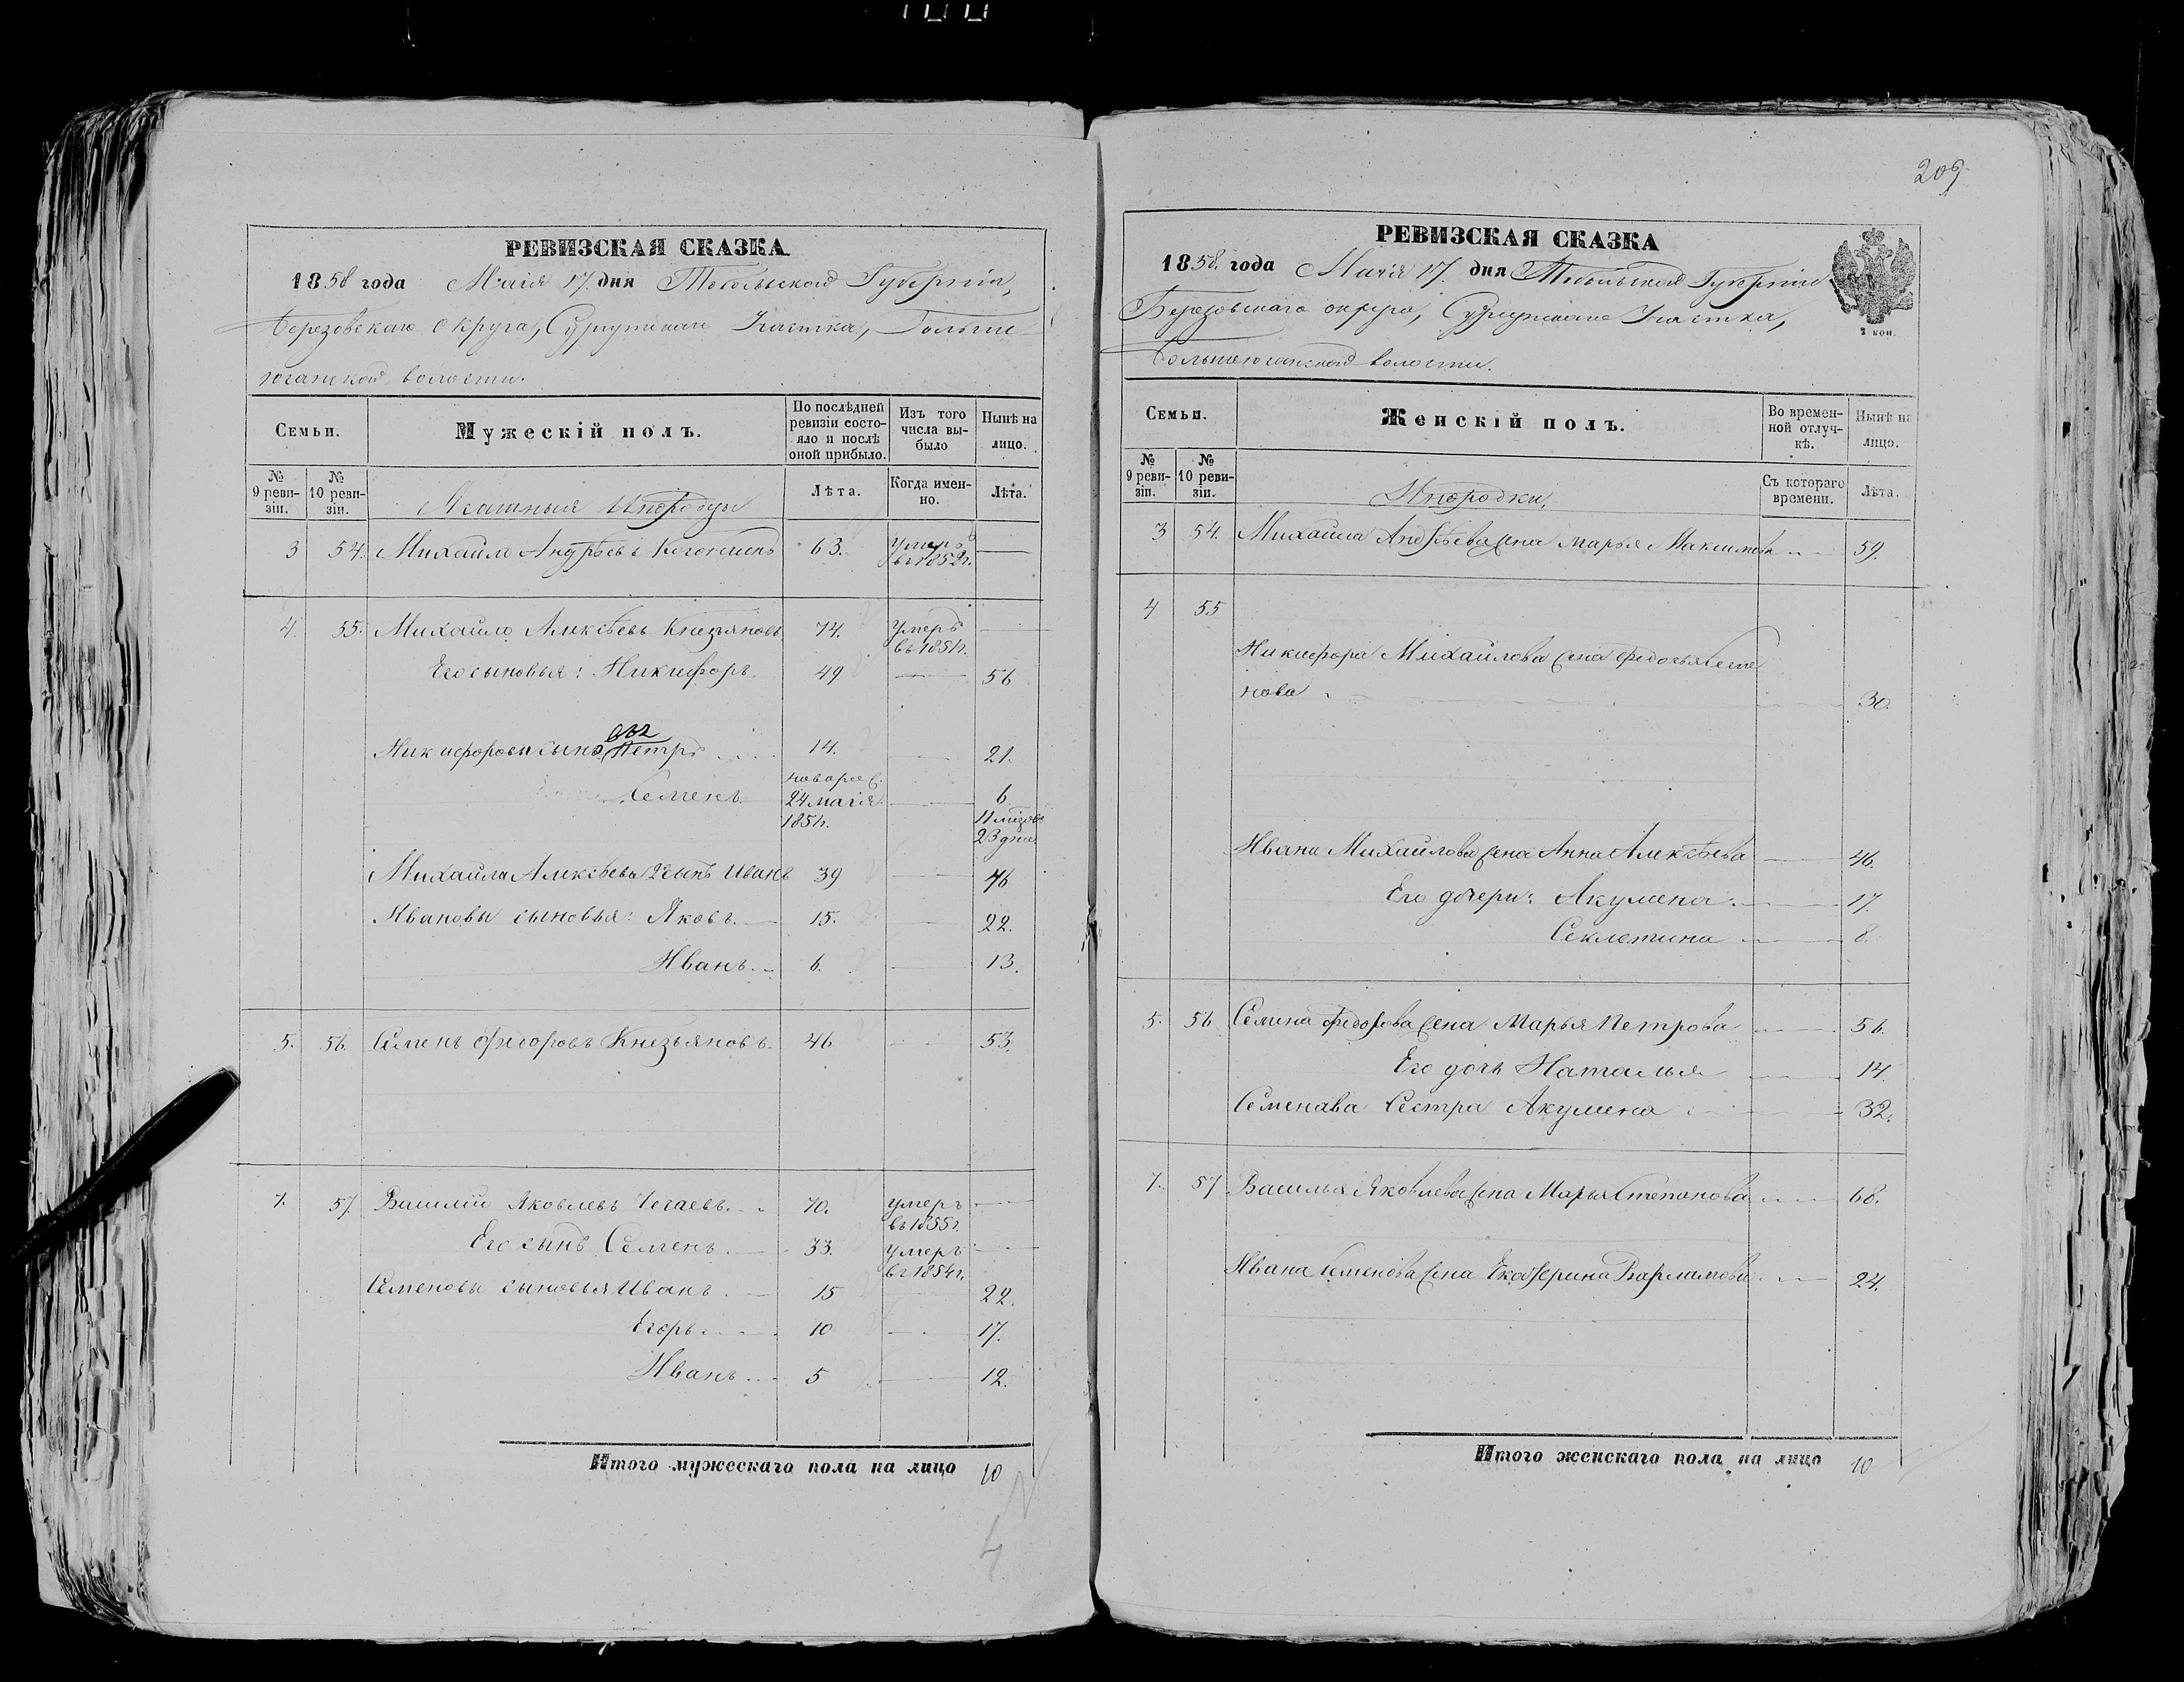 209
РЕВИЗСКАЯ СКАЗКА
1858 года Маія 17. дня Тобольской Губерніи,
Березовскаго округа, Сургутскаго Участка, Больше-
юганской волости.
Семьи.
Мужескій полъ.
По послѣдней ревизіи состояло и послѣ оной прибыло.
Изъ того числа выбыло
Нынѣ на лицо.
№ 9 ревизіи.
№ 10 ревизіи.
Ясашныя Инородцы
Лѣта.
Когда именно.
Лѣта.
3 54. Михайло Андрѣевъ 63. умеръ въ 1852г. —
4. 55. Михайло Алексѣевъ Князьяновъ 74. умеръ въ 1851г. —
Его сыновья: Никифоръ 49 — 56
Никифоровы сынов. Петръ 14. — 21.
Семенъ новорож. 24 маія 1851г. — 6 11 мѣсяц. 23 дня
Михайла Алексѣева 2 сынъ Иванъ 39 — 46
Ивановы сыновья: Яковъ. 15. — 22.
Иванъ. 6. — 13.
5. 56. Семенъ Федоровъ Князьяновъ 46 — 53.
7. 57 Василій Яковлевъ Чегаевъ. 70. умеръ въ 1855г. —
Его сынъ Семенъ. 33. умеръ въ 1854г. —
Семеновы сыновья Иванъ. 15 — 22.
Егоръ. 10 — 17.
Иванъ. 5 — 12.
Итого мужескаго пола на лицо 10
РЕВИЗСКАЯ СКАЗКА
1858. года Маія 17. дня Тобольской Губерніи
Березовскаго округа, Сургутскаго Участка,
Большеюганской волости.
2 коп.
Семьи.
Женскій полъ.
Во временной отлучкѣ.
Нынѣ на лицо.
№ 9 ревизіи.
№ 10 ревизіи.
Инородки,
Съ котораго времени.
Лѣта.
3 54. Михайла Андрѣева жена Марья Максимова 59.
4 55
Никифора Михайлова жена Федосья Семе
нова 30.
Ивана Михайлова жена Анна Алексѣева — 46.
Его дочери: Акулина. — 17.
Секлетина — 8.
5. 56 Семена Федорова жена Марья Петрова — 56.
Его дочь Наталья — 14.
Семенава Сестра Акулина — 32.
7. 57 Василья Яковлева жена Марья Степанова — 68.
Ивана Семенова жена Екатерина Варламова. — 24.
Итого женскаго пола на лицо 10